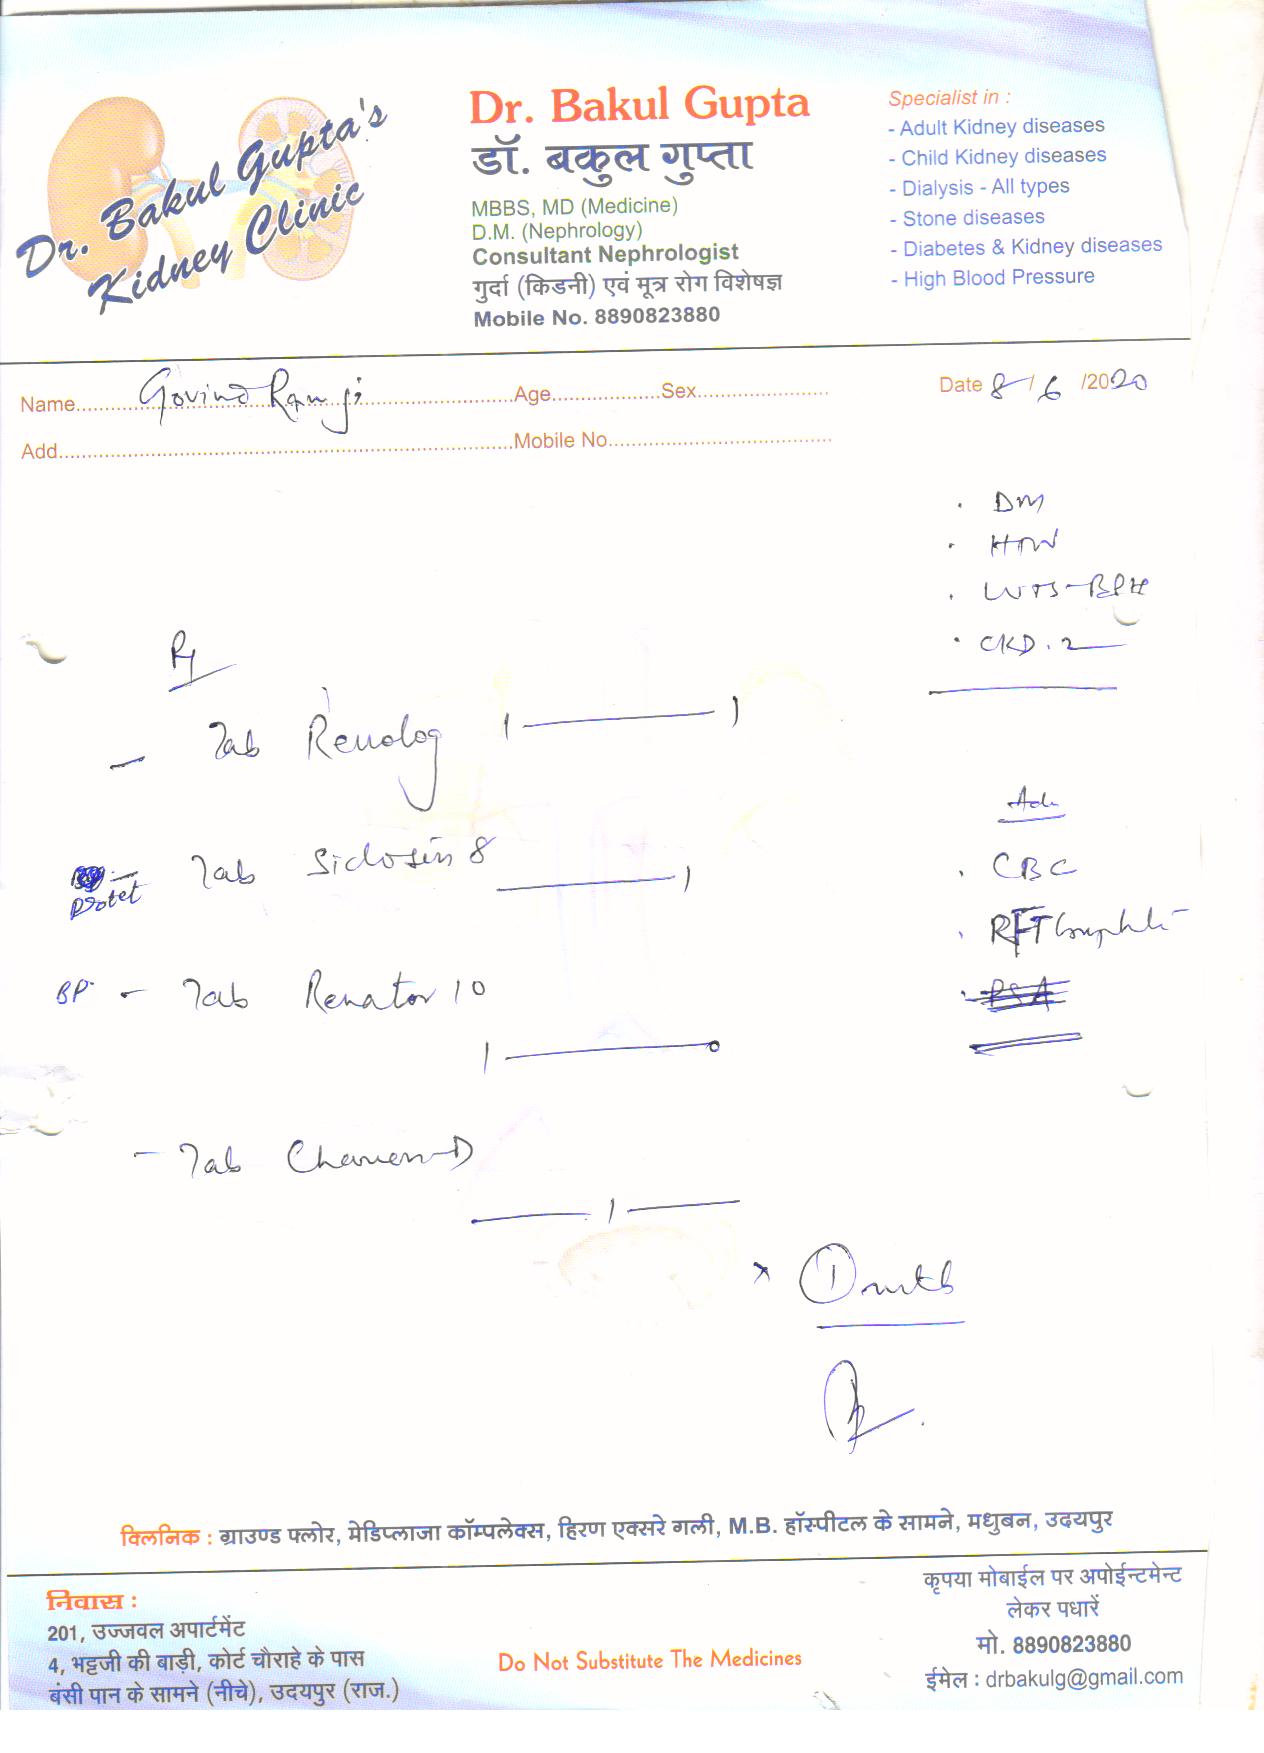 Dr. Bakul Gupta's
Kidney Clinic
Dr. Bakul Gupta
डॉ. बकुल गुप्ता
MBBS, MD (Medicine)
D.M. (Nephrology)
Consultant Nephrologist
गुर्दा (किडनी) एवं मूत्र रोग विशेषज्ञ
Mobile No. 8890823880
Specialist in :
- Adult Kidney diseases
- Child Kidney diseases
- Dialysis - All types
- Stone diseases
- Diabetes & Kidney diseases
- High Blood Pressure
Name Govind Ram ji Age Sex Date 8/6/2020
Add Mobile No
. DM
. HTN
. LUTS-BPH
. CKD. 2
Rx
- Tab Renolog 1 — 1
Adv
- Tab Silodosin 8 — 1
Protet
. CBC
. RFT Complete
BP - Tab Renator 10
1 — 0
- Tab D
— 1 —
x 1 mth
क्लिनिक : ग्राउण्ड फ्लोर, मेडिप्लाजा कॉम्पलेक्स, हिरण एक्सरे गली, M.B. हॉस्पीटल के सामने, मधुबन, उदयपुर
निवास :
201, उज्जवल अपार्टमेंट
4, भट्टजी की बाड़ी, कोर्ट चौराहे के पास
बंसी पान के सामने (नीचे), उदयपुर (राज.)
Do Not Substitute The Medicines
कृपया मोबाईल पर अपोईन्टमेन्ट
लेकर पधारें
मो. 8890823880
ईमेल : drbakulg@gmail.com